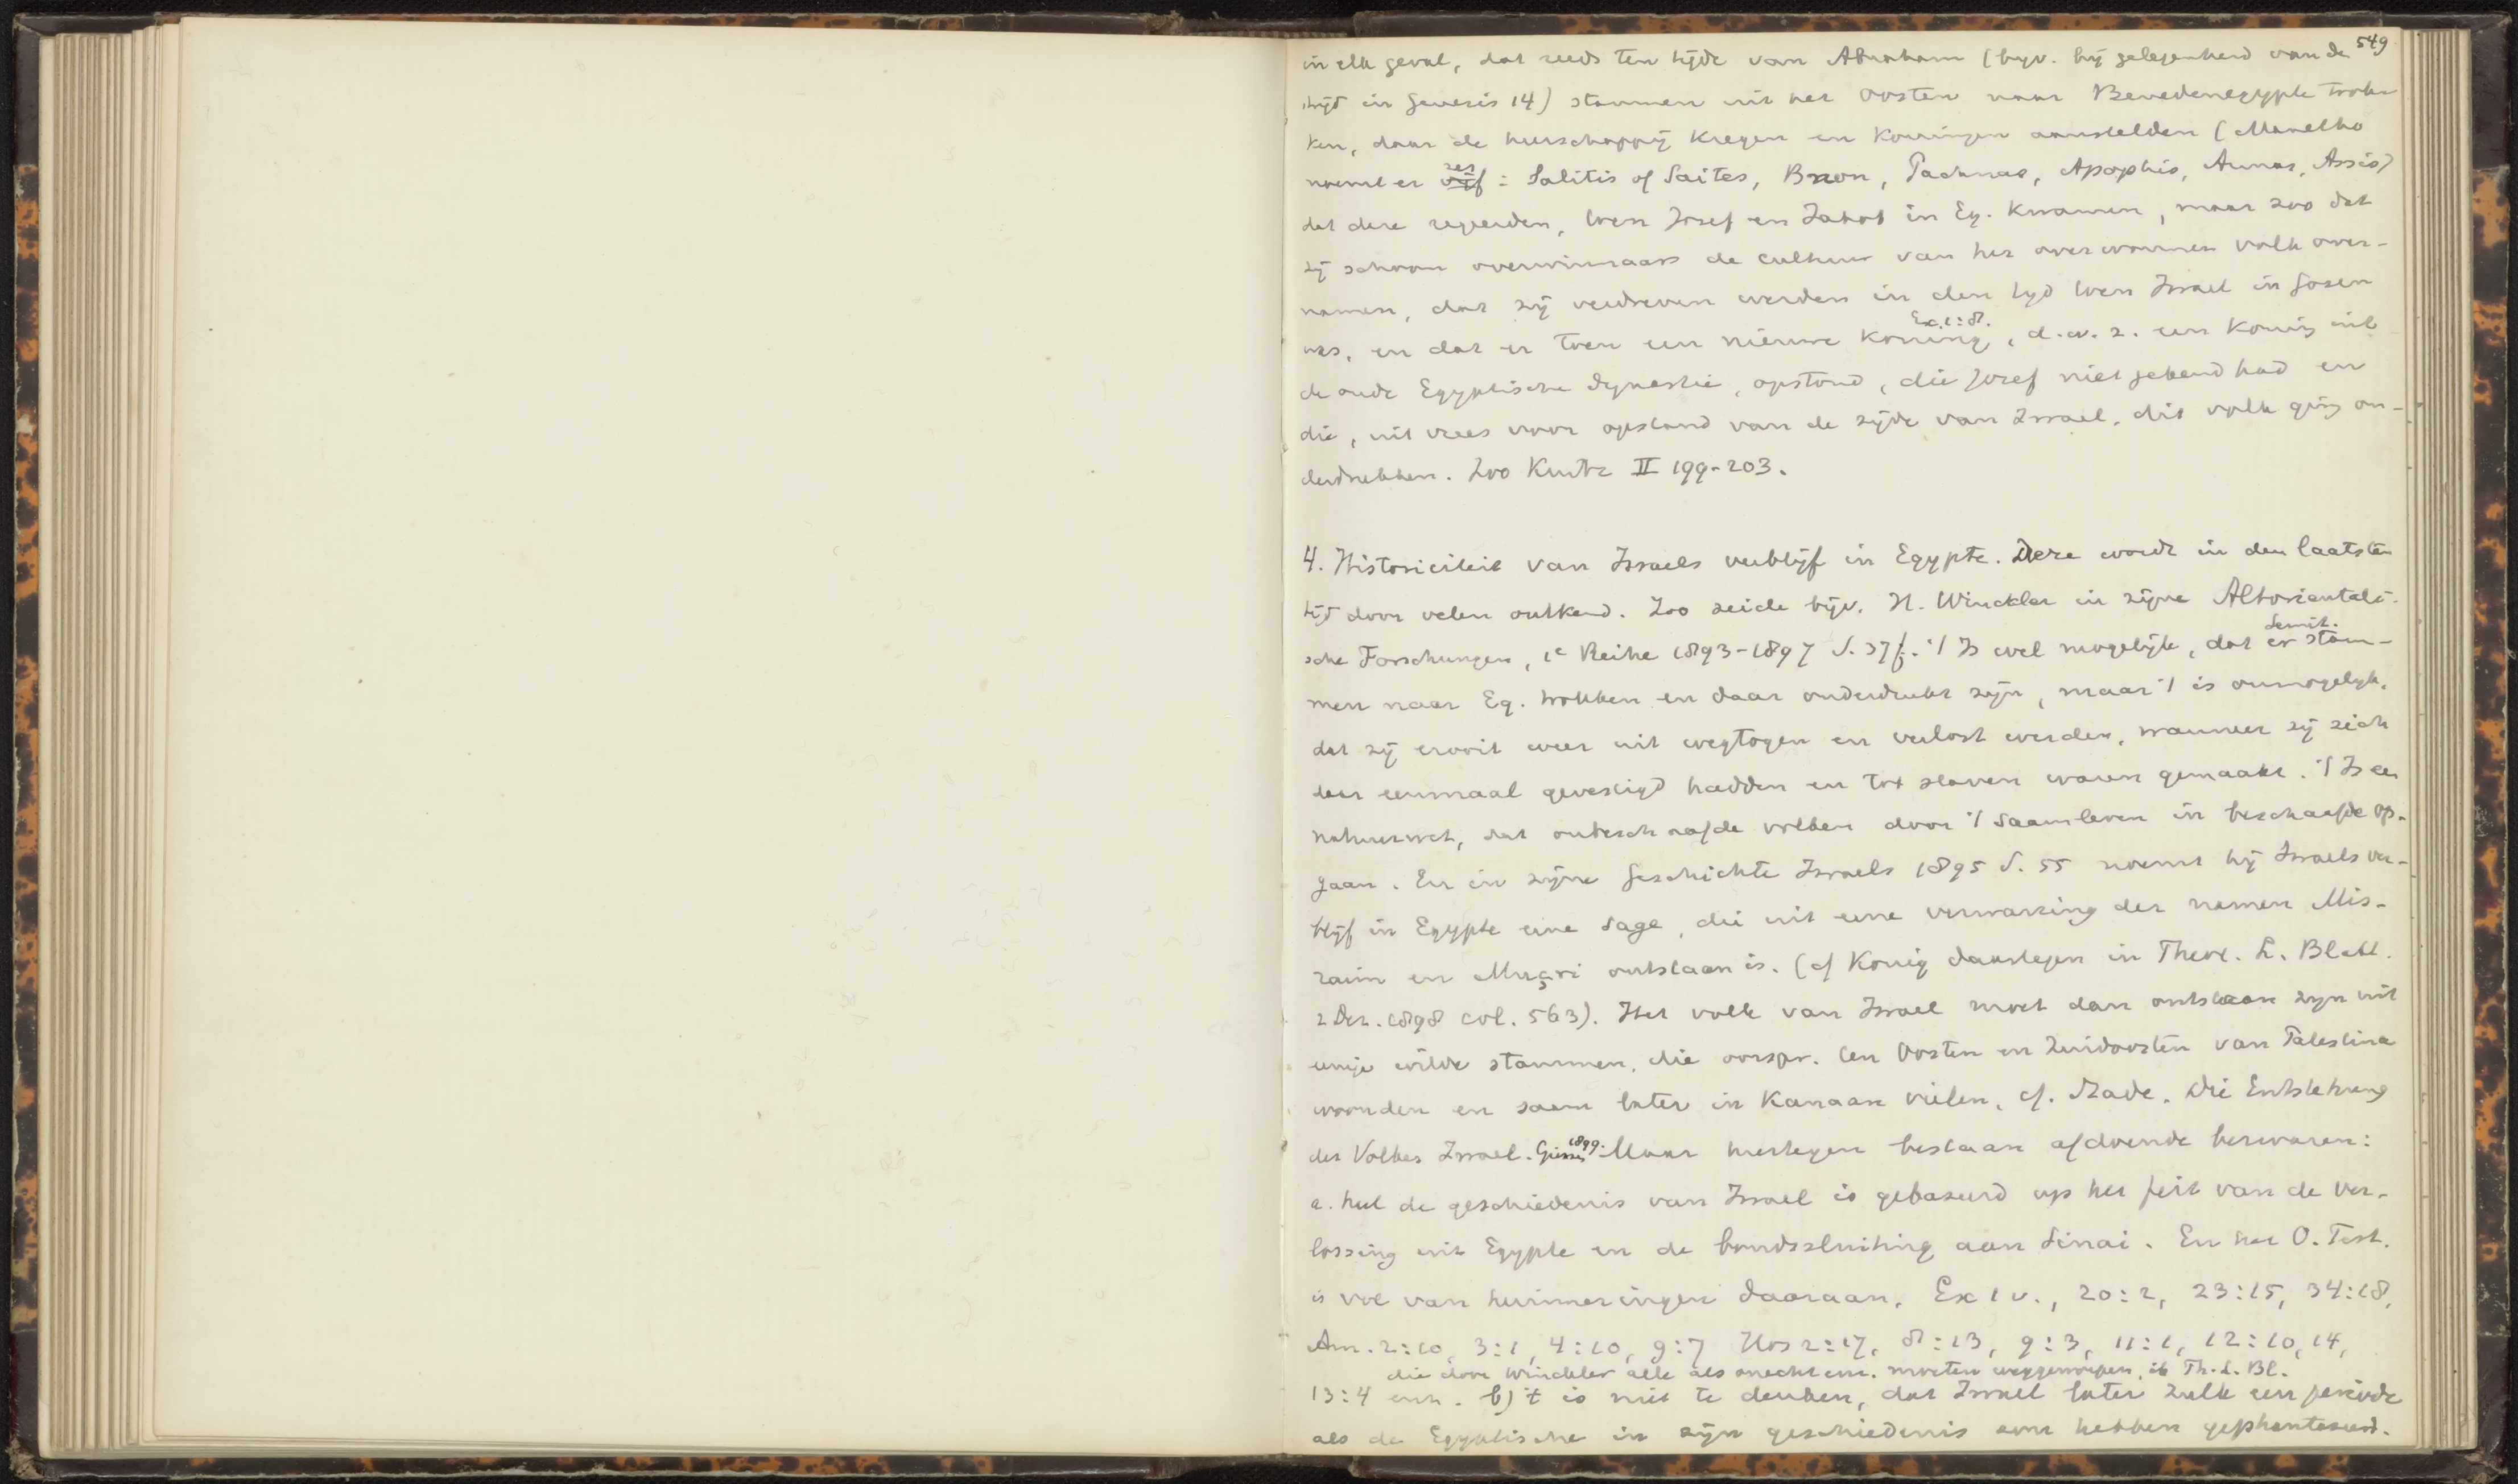 549
in elk geval, dat reeds ten tijde van Abraham (byv. bij gelegenheid van de
strijd in Genesis 14) stammen uit het Oosten naar Benedenegypte trok-
ken, daar de heerschappij kregen en koningen aanstelden (Manetho
noemt er zes vijf: Salitis of Saites, Bnon, Pachnas, Apophis, Annas, Assis)
dat deze regeerden, toen Jozef en Jakob in Eg. kwamen, maar zoo dat
zij schoon overwinnaars de cultuur van het overwonnen volk over-
namen, dat zij verdreven werden in den tyd toen Israel in Gosen
was, en dat er toen een nieuwe koning, Ex. 1:8. d.w.z. een koning uit
de oude Egyptische dynastie, opstond, die Jozef niet gekend had en
die, uit vrees voor opstand van de zijde van Israel, dit volk ging on-
derdrukken. Zoo Kurtz II 199-203.
4. Historiciteit van Israels verblijf in Egypte. Deze wordt in den laatsten
tijd door velen ontkend. Zoo zeide bijv. H. Winckler in zijne Altorientali-
sche Forschungen, 1e Reihe 1893-1897 S. 37f. 't Is wel mogelijk, dat er Semit. stam-
men naar Eg. trokken en daar onderdrukt zijn, maar 't is onmogelyk,
dat zij er ooit weer uit wegtogen en verlost werden, wanneer zij zich
daar eenmaal gevestigd hadden en tot slaven waren gemaakt. 't Is een
natuurwet, dat onbeschaafde volken door 't saamleven in beschaafde op-
gaan. En in zijne Geschichte Israels 1895 S. 55 noemt hij Israels ver-
blijf in Egypte eene sage, die uit eene verwarring der namen Mis-
raim en Muṣri ontstaan is. (cf König daartegen in Theol. L. Blatt.
2 Dez. 1898 col. 563). Het volk van Israel moet dan ontstaan zyn uit
eenige wilde stammen, die oorspr. ten Oosten en Zuidoosten van Palestina
woonden en saam later in Kanaan vielen, cf. Stade. Die Entstehung
des Volkes Israel. Giessen 1899. Maar hiertegen bestaan afdoende bezwaren:
a. heel de geschiedenis van Israel is gebaseerd op het feit van de ver-
lossing uit Egypte en de bondssluiting aan Sinai. En het O. Test.
is vol van herinneringen daaraan, Ex 1 v., 20:2, 23:15, 34:18,
Am. 2:10, 3:1, 4:10, 9:7 Hos 2:17, 8:13, 9:3, 11:1, 12:10, 14,
die door Winckler alle als onecht enz. moeten weggeworpen, ib Th. L. Bl.
13:4 enz. b) 't is niet te denken, dat Israel later zulk een periode
als de Egyptische in zijn geschiedenis zou hebben gephantaseerd.